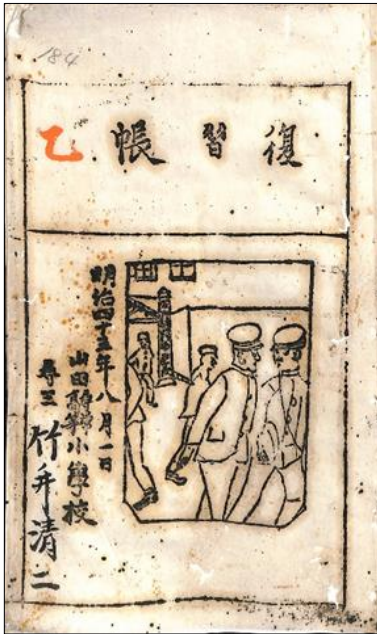 184
復習帳 乙
明治四十五年八月一日
山田小學校
尋三 竹井清二